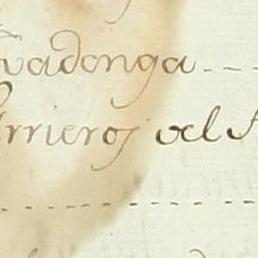 vadonga
rrieros del